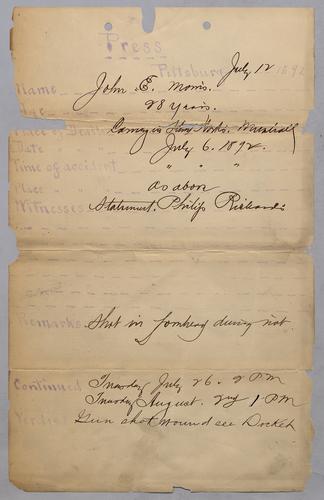 Press
Pittsburg July 12 1892
Name John E. Morris.
28 Years.
Place of Death Carnegie Works. Munhall
Date July 6. 1892.
Time of accident " " "
Place " " as above
Witnesses Statement. Philip Richards
Remarks Shot in forehead during riot.
Continued Tuesday July 26. 2 P.M
Tuesday August. 2nd 1 P.M
Verdict Gun shot wound see Docket